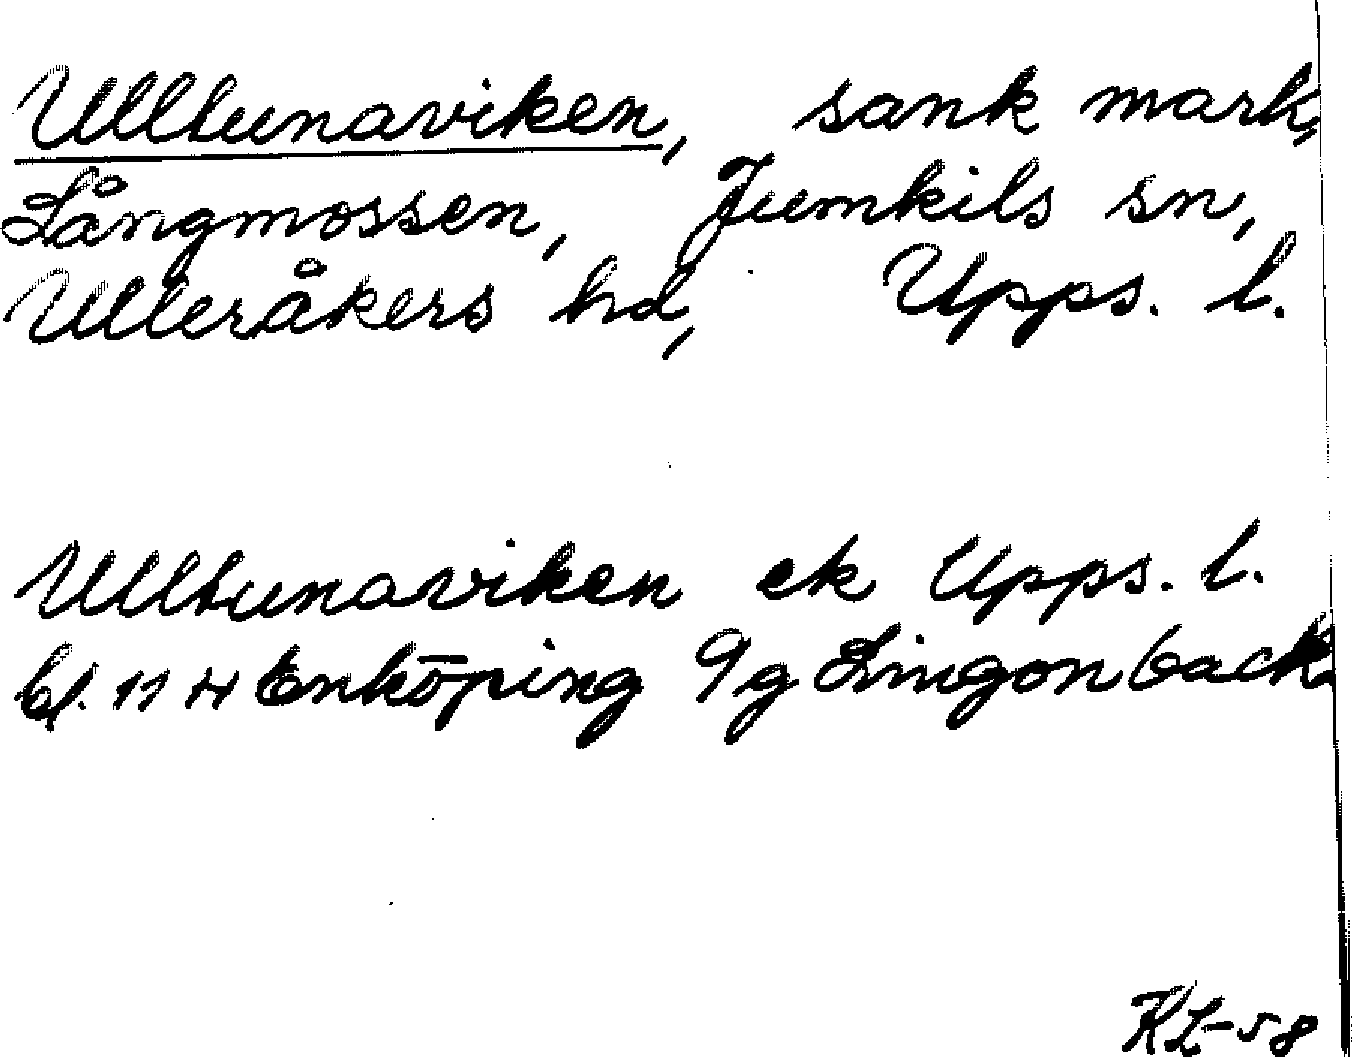 Ulltunaviken, sank mark,
Långmossen, Jumkils sn,
Ulleråkers hd, Upps. l.
Ulltunaviken ek Upps. l.
bl. 11 H Enköping 9g Lingonback
KL-58